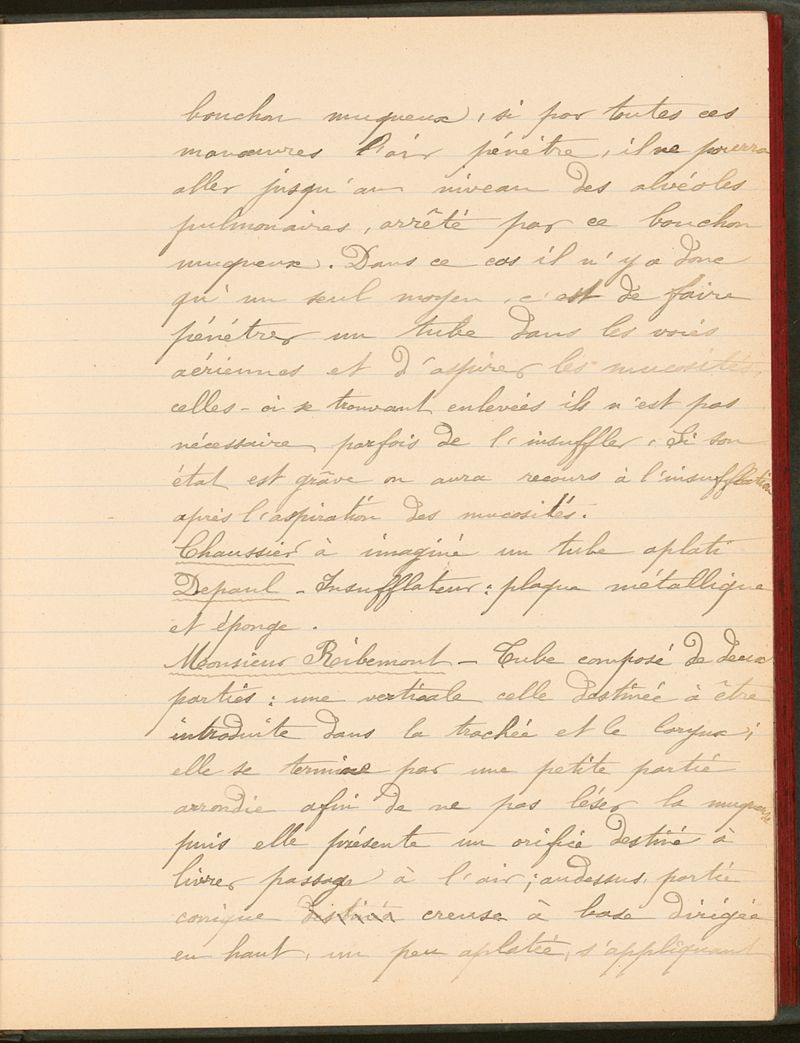 bouchon muqueux, si par toutes ces
manœuvres l'air pénètre, il ne pourra
aller jusqu'au niveau des alvéoles
pulmonaires, arrêté par ce bouchon
muqueux. Dans ce cas il n'y a donc
qu'un seul moyen, c'est de faire
pénétrer un tube dans les voies
aériennes et d'aspirer les mucosités,
celles-ci se trouvant enlevées il n'est pas
nécessaire parfois de l'insuffler. Si son
état est grâve on aura recours à l'insufflation
après l'aspiration des mucosités.
Chaussier à imaginé un tube aplati
Depaul - Insufflateur : plaque métallique
et éponge.
Monsieur Ribemont - Tube composé de deux
parties : une verticale celle destinée à être
introduite dans la trachée et le larynx ;
elle se termine par une petite partie
arrondie afin de ne pas léser la muqueuse
puis elle présente un orifice destiné à
livrer passage à l'air ; audessus, partie
conique destinée creuse à base dirigée
en haut, un peu aplatie, s'appliquant